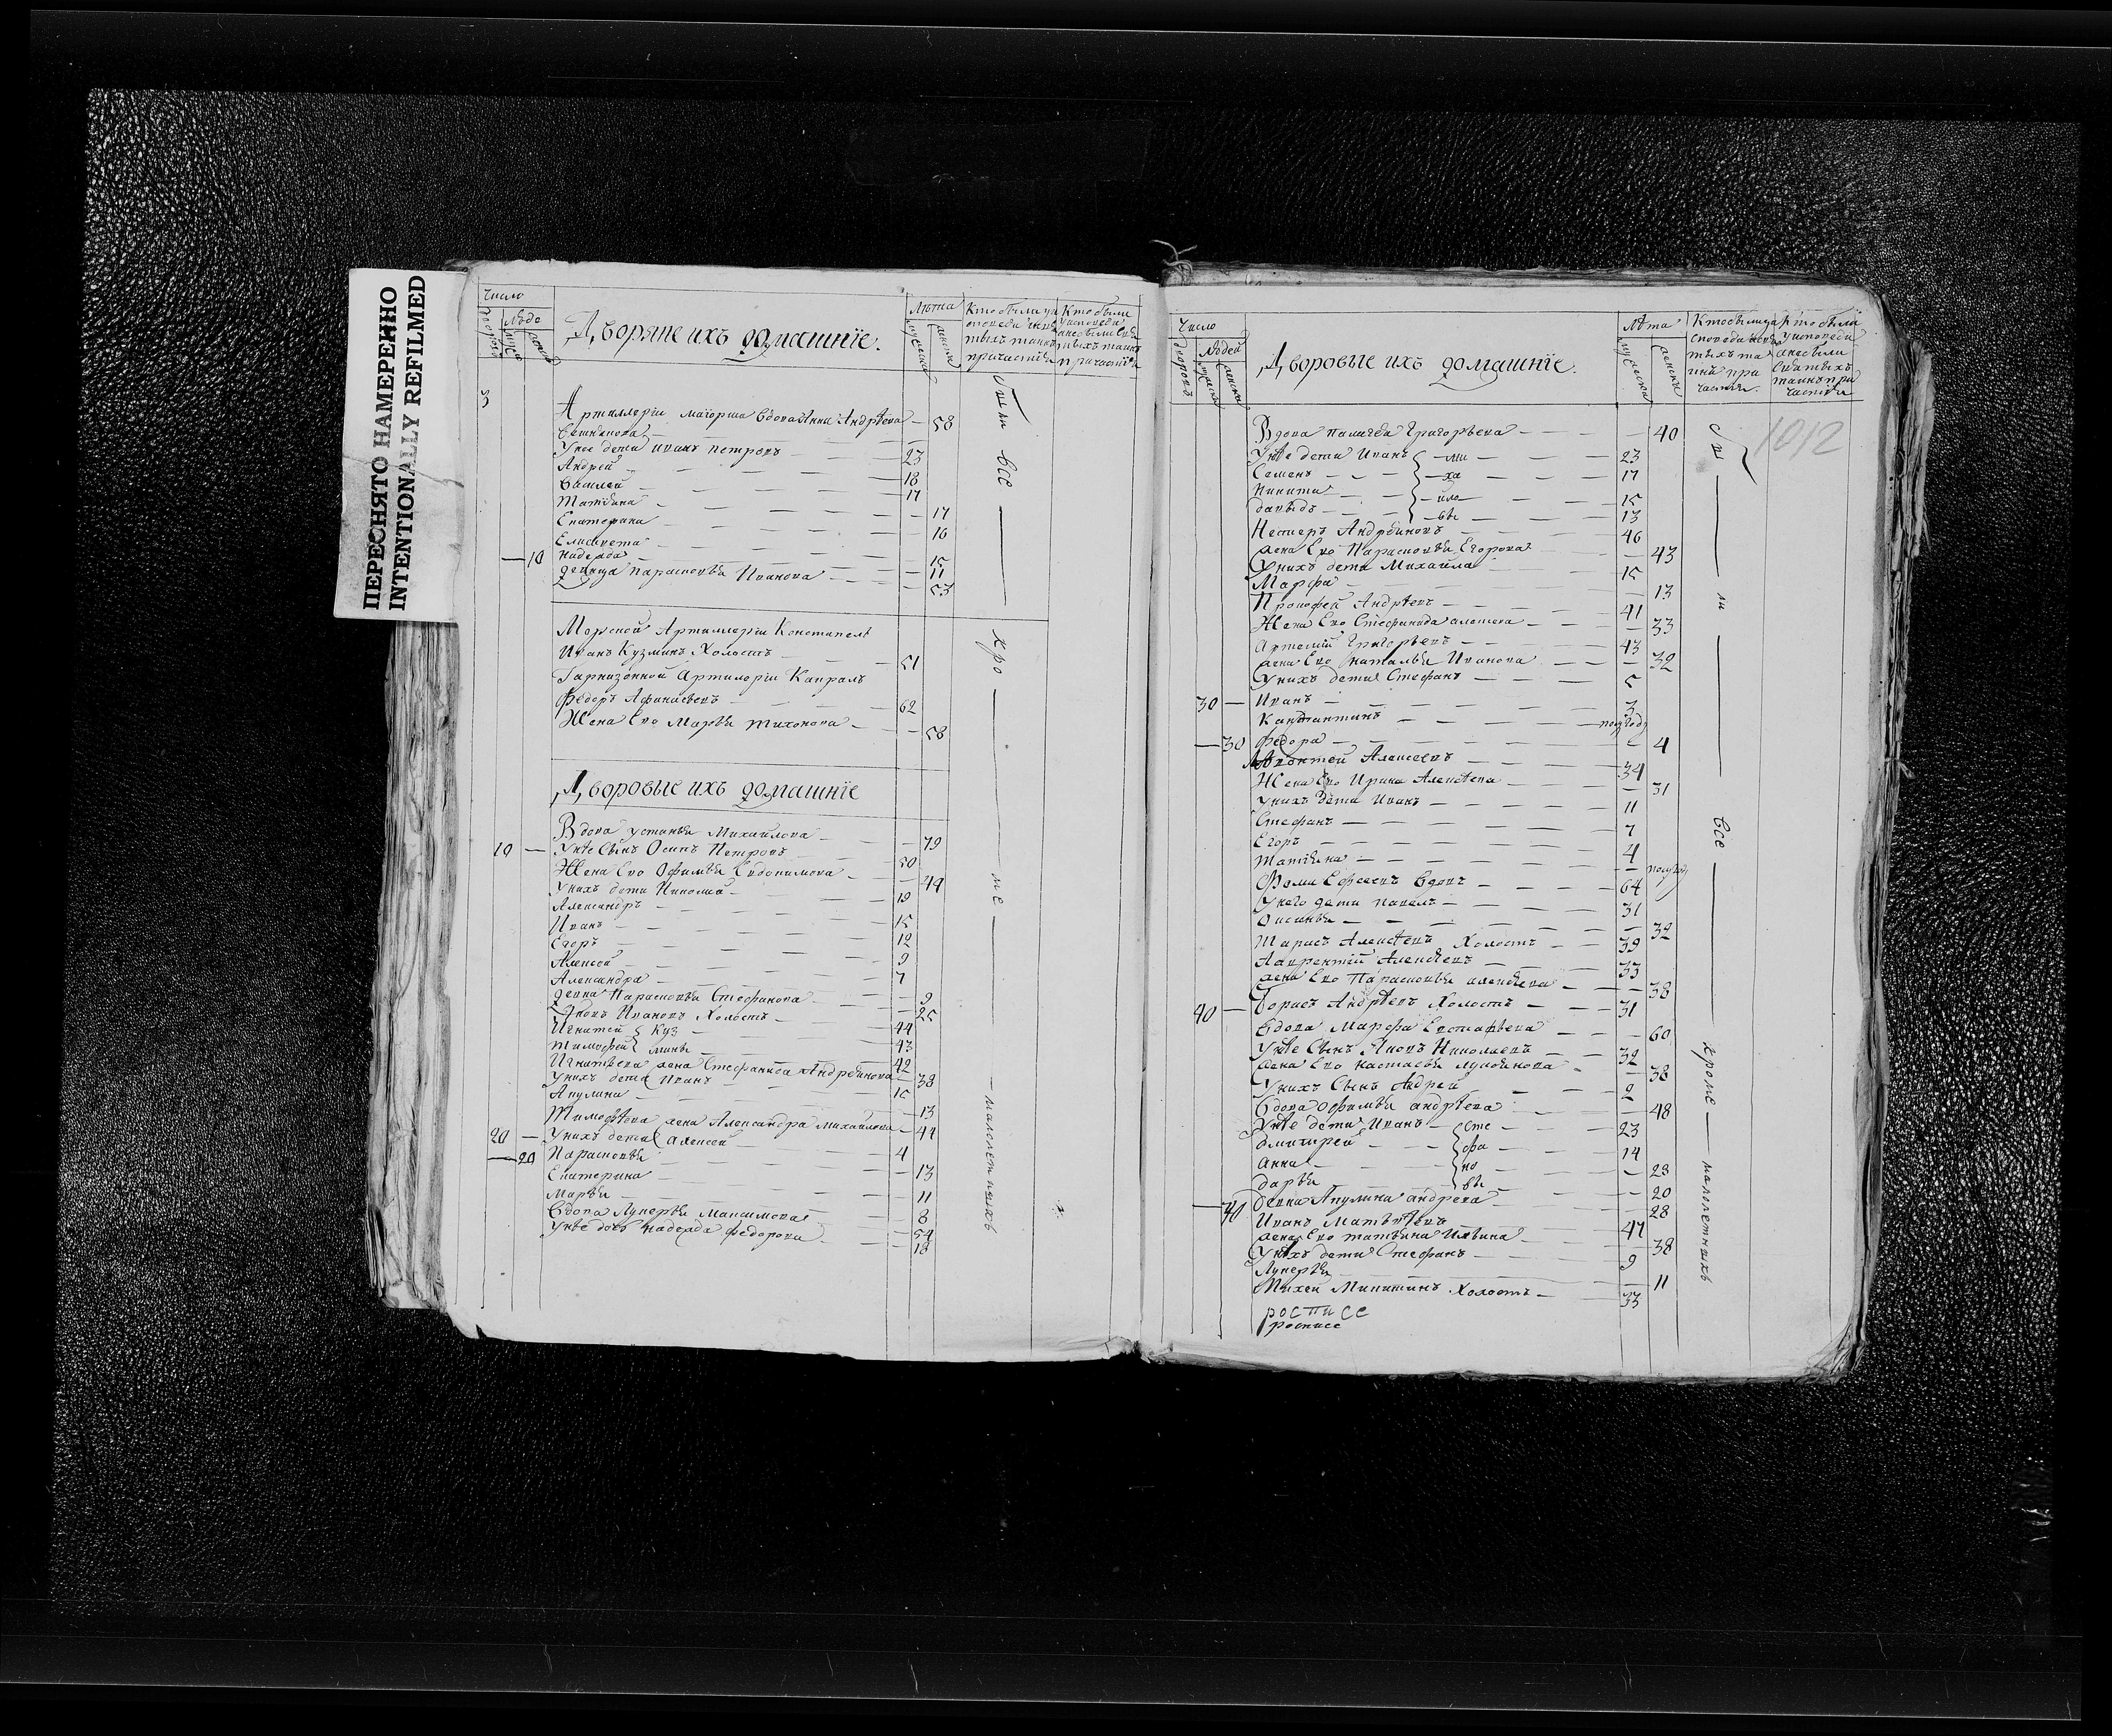 ПЕРЕСНЯТО НАМЕРЕННО
INTENTIONALLY REFILMED
Число
Дворяне ихъ домашнїе.
Лѣта
Артиллерїи маіорша вдова Анна Андрѣева — 58
Унее дети Иванъ Петровъ — 23
Андрей — 18
Василей — 17
Татіяна — 17
Екатерина — 16
Елисавета — 15
— 10 Надежда — 11
девица Парасковья Иванова — 53
Морской Артиллерїи Констапель
Иванъ Кузминъ Холостъ — 51
Гарнизонной Артилерїи Капралъ
Федоръ Афанасьевъ — 62
Жена Ево Марья Тихонова — 58
Дворовые ихъ домашнїе
Вдова Устинья Михайлова — 79
10 — Унее Сынъ Осипъ Петровъ — 50
Жена Ево Офимья Евдокимова — 49
Унихъ дети Николай — 19
Александръ — 15
Иванъ — 12
Егоръ — 9
Алексей — 7
Александра — 9
девка Парасковья Стефанова — 25
Яковъ Ивановъ Холостъ — 44
Игнатей Куз — 43
Тимофей мины — 42
Игнатьева жена Стефанида Андреянова — 38
Унихъ дети Иванъ — 15
Акулина — 13
Тимофѣева жена Александра Михайлова — 44
20 — Унихъ дети Алексей — 4
— 20 Парасковья — 13
Екатерина — 11
Марья — 8
Вдова Лукерья Максимова — 54
Унее дочь Надежда Федорова — 18
все
кро — ме — малолетныхъ
Число
Людей
Дворовые ихъ домашнїе.
Лѣта
1012
Вдова Палагея Григорьева — 40
Унѣе дети Иванъ — ми — 23
Семенъ — ха — 17
Никита — ило — 15
Давыдъ — вы — 13
Нестеръ Андреяновъ — 46
жена Ево Парасковья Егорова — 43
Унихъ дети Михайла — 15
Марфа — 13
Прокофей Андрѣевъ — 41
Жена Ево Стефанида — 33
Артемїй Григорьевъ — 43
жена Ево Наталья Иванова — 32
Унихъ дети Стефанъ — 5
30 — Иванъ — 3
Канстантинъ — полгода
— 30 Федора — 4
Алексеевъ — 34
Жена Ево Ирина Алексѣева — 31
Унихъ дети Иванъ — 11
Стефанъ — 7
Егоръ — 4
Татіяна — полгода
Фома Ефсеевъ Вдовъ — 64
Унего дети Павелъ — 31
Оксинья — 32
Тарасъ Алексѣевъ Холостъ — 39
Лаврентїй Алексѣевъ — 33
жена Ево Парасковья Алексѣева — 38
40 — Борисъ Андрѣевъ Холостъ — 31
Вдова Марфа Евстафьева — 60
Унѣе Сынъ Яковъ Николаевъ — 32
жена Ево Настасья Лукоянова — 38
Унихъ Сынъ Андрей — 2
Вдова Офимья Андрѣева — 48
Унѣе дети Иванъ — Сте — 23
Дмитрей — фа — 14
Анна — но — 28
Дарья — вы — 20
— 40 девка Акулина Андреева — 28
Иванъ Матвѣевъ — 47
жена Ево Татьяна Ильина — 38
Унихъ дети Стефанъ — 9
Лукерья — 11
Михей Микитинъ Холостъ — 33
роспись
все — кроме — малолетныхъ